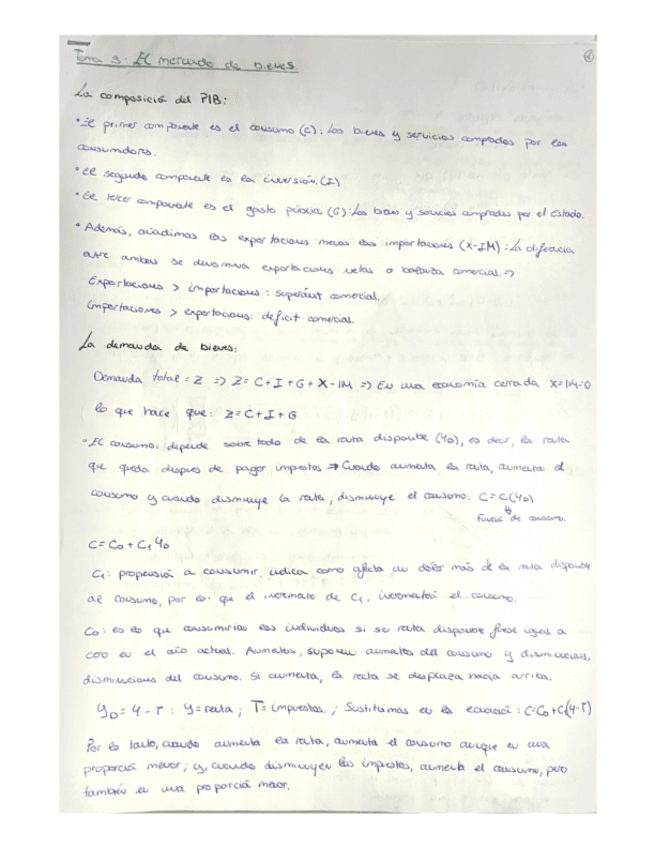 Tema 3: El mercado de bienes
1
La composición del PIB:
• El primer componente es el consumo (C): Los bienes y servicios comprados por los
consumidores.
• El segundo componente es la inversión. (I)
• El tercer componente es el gasto público (G): Los bienes y servicios comprados por el Estado.
• Además, añadimos las exportaciones menos las importaciones (X-IM): La diferencia
entre ambas se denomina exportaciones netas o balanza comercial. =>
Exportaciones > importaciones: superávit comercial.
Importaciones > exportaciones: déficit comercial.
La demanda de bienes:
Demanda total = Z => Z = C + I + G + X - IM => En una economía cerrada X=IM=0
lo que hace que: Z = C + I + G
• El consumo: depende sobre todo de la renta disponible (YD), es decir, la renta
que queda despues de pagar impuestos => Cuando aumenta la renta, aumenta el
consumo y cuando disminuye la renta, disminuye el consumo: C = C(YD)
Función de consumo.
C = C0 + C1 YD
C1: propensión a consumir, indica como afecta un dólar más de la renta disponible
al consumo, por lo que el incremento de C1, incrementa el consumo.
C0: es lo que consumirían los individuos si su renta disponible fuese igual a
cero en el año actual. Aumentos, suponen aumentos del consumo y disminuciones,
disminuciones del consumo. Si aumenta, la recta se desplaza hacia arriba.
YD = Y - T : Y = renta; T = impuestos.; Sustituimos en la ecuación: C = C0 + C1(Y-T)
Por lo tanto, cuando aumenta la renta, aumenta el consumo aunque en una
proporción menor; y, cuando disminuyen los impuestos, aumenta el consumo, pero
también en una proporción menor.